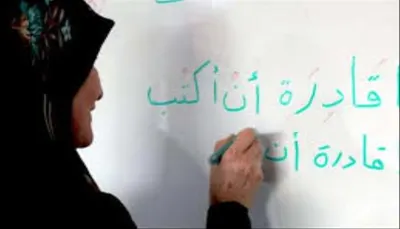 قَادِرَة أن أكتب
قادرة أن